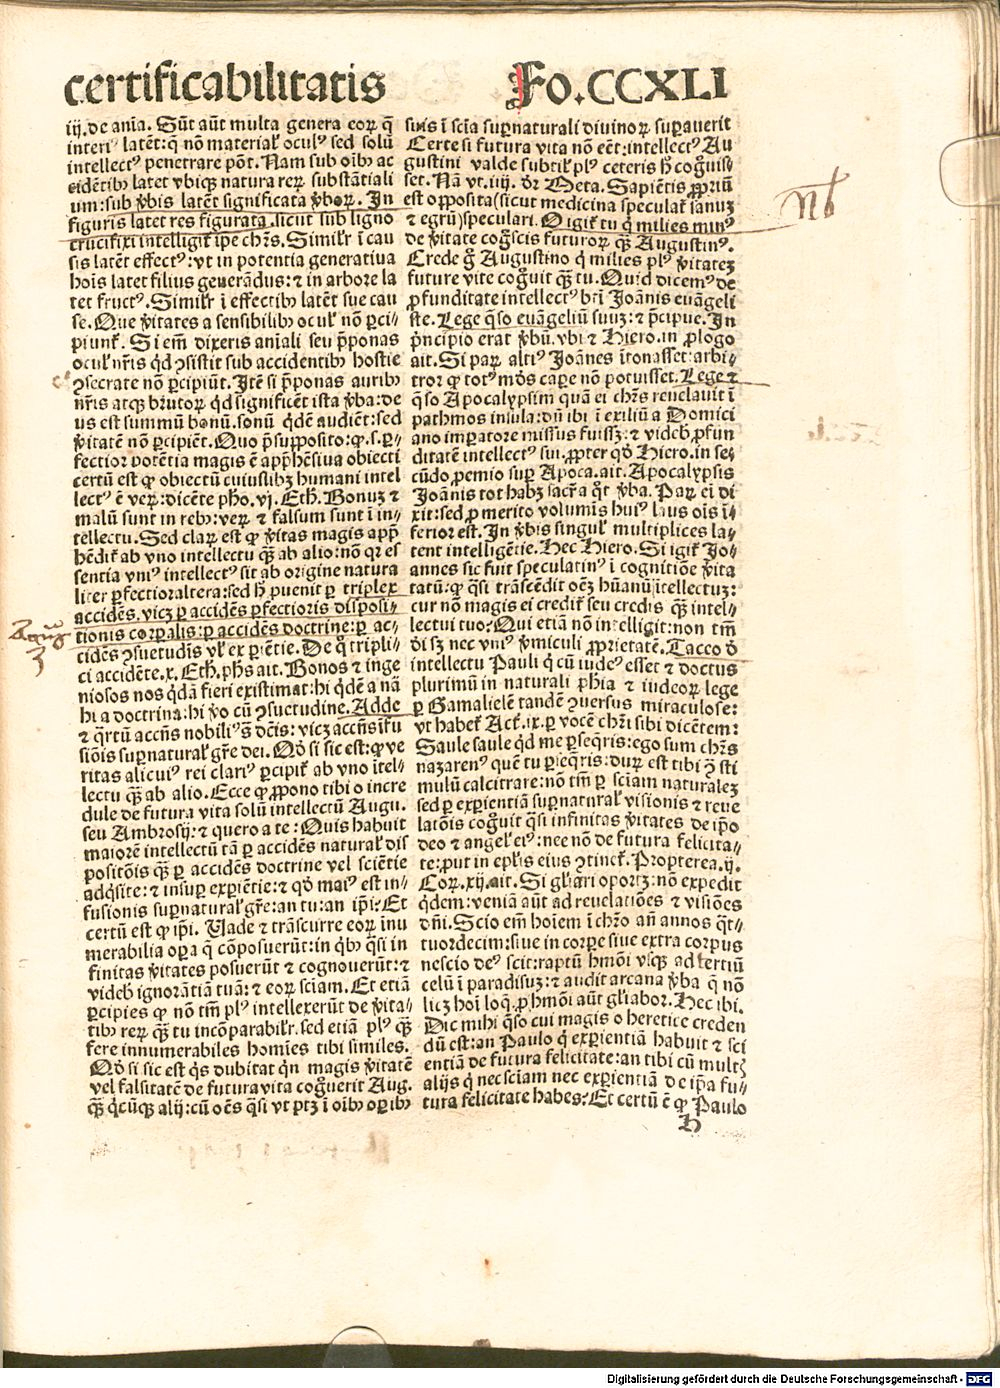 certificabilitatis
Fo.CCXLI
iij. de anīa. Sūt aūt multa genera eoꝝ q̄
interi⁹ latēt: q̄ nō material' ocul⁹ sed solū
intellect⁹ penetrare pōt. Nam sub oībꝫ ac
cidētibꝫ latet vbiqꝫ natura reꝝ substātiali
um: sub v̄bis latēt significata v̄boꝝ. In
figuris latet res figurata. sicut sub ligno
crucifixi intelligit' ip̄e chr̄s. Similr̄ ī cau
sis latēt effect⁹: vt in potentia generatiua
hoīs latet filius generādus: ⁊ in arbore la
tet fruct⁹. Similr̄ ī effectibꝫ latēt sue cau
se. Que v̄itates a sensibilibꝫ ocul' nō ꝑci⸗
piunt'. Si em̄ dixeris aniāli seu p̄ponas
ocul' nr̄is qd' ꝯsistit sub accidentibꝫ hostie
ꝯsecrate nō ꝑcipiūt. Itē si p̄ponas auribꝫ
nr̄is atqꝫ brutoꝝ qd' significēt ista v̄ba: de
us est summū bonū. sonū qdē audiēt: sed
v̄itatē nō ꝑcipiēt. Quo p̄supposito: ꝙ .s. ꝑ⸗
fectior potētia magis ē app̄hēsiua obiecti
certū est ꝙ obiectū cuiuslibꝫ humani intel
lect⁹ ē veꝝ: dicēte ph̄o. vj. Eth'. Bonuꝫ ⁊
malū sunt in rebꝫ: veꝝ ⁊ falsum sunt ī in⸗
tellectu. Sed claꝝ est ꝙ v̄itas magis app̄
hēdit' ab vno intellectu qꝫ̄ ab alio: nō qꝛ es
sentia vni⁹ intellect⁹ sit ab origine natura
liter ꝑfectior altera: sed h̄ ꝓuenit ꝑ triplex
accidēs. vicꝫ ꝑ accidēs ꝑfectioris disposi⸗
tionis corꝑalis: ꝑ accidēs doctrine: ꝑ ac⸗
cidēs ꝯsuetudīs vl' exꝑiētie. De q̄ tripli⸗
ci accidēte. x. Eth'. ph̄s ait. Bonos ⁊ inge
niosos nos qdā fieri existimāt: hi qdē a nā
hi a doctrina: hi v̄o cū ꝯsuetudine. Adde
⁊ q̄rtū accn̄s nobili⁹ oīs: vicꝫ accn̄s īfu
siōis suꝑnatural' gr̄e dei. Qd' si sic est: ꝙ ve
ritas alicui⁹ rei clari⁹ ꝑcipit' ab vno ītel⸗
lectu qꝫ̄ ab alio. Ecce ꝙ ꝓpono tibi o incre
dule de futura vita solū intellectū Augu.
seu Ambrosij: ⁊ quero a te: Quis habuit
maiorē intellectū tā ꝑ accidēs natural' dis
positōis qꝫ̄ ꝑ accidēs doctrine vel sciētie
adq̄site: ⁊ insuꝑ exꝑiētie: ⁊ qd' mai⁹ est in⸗
fusionis suꝑnatural' gr̄e: an tu: an ip̄i: Et
certū est ꝙ ip̄i. Uade ⁊ trāscurre eoꝝ inu
merabilia oꝑa q̄ cōposuerūt: in qbꝫ q̄si in
finitas v̄itates posuerūt ⁊ cognouerūt: ⁊
videbꝫ ignorātiā tuā: ⁊ eoꝝ sciam. Et etiā
ꝑcipies ꝙ nō tm̄ pl⁹ intellexerūt de v̄ita⸗
tibꝫ reꝝ qꝫ̄ tu incōparabilr̄. sed etiā pl⁹ qꝫ̄
fere innumerabiles homīes tibi similes.
Qd' si sic est qs dubitat qn magis v̄itatē
vel falsitatē de futura vita cog'uerit Aug.
qꝫ̄ qcūqꝫ alij: cū oēs q̄si vt ptꝫ ī oībꝫ oꝑibꝫ
suis ī scīa suꝑnaturali diuinoꝝ suꝑauerit
Certe si futura vita nō eēt: intellect⁹ Au
gustini valde subtil' pl⁹ ceteris h̄ cog'uis⸗
set. Nā vt .iiij. dr̄ Meta. Sapiētis ꝓpriū
est opposita (sicut medicina speculat' sanuꝫ
⁊ egrū) speculari. O igit' tu q milies min⁹
de v̄itate cog'scis futuroꝝ qꝫ̄ Augustin⁹.
Crede g̊ Augustino q milies pl⁹ v̄itateꝫ
future vite cog'uit qꝫ̄ tu. Quid dicem⁹ de
ꝓfunditate intellect⁹ bt̄i Joānis euāgeli
ste. Lege q̄so euāgeliū suuꝫ: ⁊ p̄cipue. In
p̄ncipio erat v̄bū. vbi ⁊ Hiero. in ꝓlogo
ait. Si paꝝ alti⁹ Joānes ītonasset: arbi⸗
tror ꝙ tot⁹ mōs caꝑe nō potuisset. Lege ⁊
q̄so Apocalypsim quā ei chr̄s reuelauit ī
pathmos insula: dū ibi ī exiliū a Domici
ano imꝑatore missus fuissꝫ: ⁊ videbꝫ ꝓfun
ditatē intellect⁹ sui. ꝓpter qd' Hiero. in se⸗
cūdo ꝓemio suꝑ Apoca. ait. Apocalypsis
Joānis tot habꝫ sacra q̊t v̄ba. Paꝝ ei di
xit: sed ꝓ merito volumīs hui⁹ laus oīs ī⸗
ferior est. In v̄bis singul' multiplices la⸗
tent intelligētie. Hec Hiero. Si igit' Jo⸗
annes sic fuit speculatiu⁹ ī cognitiōe v̄ita
tatū: ꝙ q̄si trāscēdit oēꝫ hūanū ītellectuꝫ:
cur nō magis ei credit' seu credis qꝫ̄ intel⸗
lectui tuo? Qui etiā nō intelligit: non tm̄
di sꝫ nec vni⁹ v̄miculi ꝓprietatē. Tacco d'
intellectu Pauli q cū iude⁹ esset ⁊ doctus
plurimū in naturali ph̄ia ⁊ iudeoꝝ lege
ꝑ Gamalielē tandē ꝯuersus miraculose:
vt habet' Act'. ix. ꝑ vocē chr̄i sibi dicētem:
Saule saule qd' me ꝑseq̄ris: ego sum chr̄s
nazaren⁹ quē tu ꝑseq̄ris: duꝝ est tibi ꝯ sti
mulū calcitrare: nō tm̄ ꝑ sciam naturaleꝫ
sed ꝑ exꝑientiā suꝑnatural' visionis ⁊ reue
latōis cog'uit q̄si infinitas v̄itates de ip̄o
deo ⁊ angel' ei⁹: nec nō de futura felicita⸗
te: ꝓut in epl'is eius ꝯtinet'. Propterea .ij.
Coꝝ. xij. ait. Si gl'iari oportꝫ: nō expedit
qdem: veniā aūt ad reuelatiōes ⁊ visiōes
dn̄i. Scio em̄ hoīem ī chr̄o an̄ annos q̄t⸗
tuordecim: siue in corꝑe siue extra corpus
nescio de⁹ scit: raptū hm̄oi vsqꝫ ad tertiū
celū ī paradisuꝫ: ⁊ audit arcana v̄ba q̄ nō
licꝫ hoī loq. ꝓ hm̄oi aūt gl'iabor. Hec ibi.
Dic mihi q̄so cui magis o heretice creden
dū est: an Paulo q exꝑientiā habuit ⁊ sci
entiā de futura felicitate: an tibi cū multꝭ
alijs q nec sciam nec exꝑientiā de ip̄a fu⸗
tura felicitate habes? Et certū ē ꝙ Paulo
H
Nb
Digitalisierung gefördert durch die Deutsche Forschungsgemeinschaft - DFG